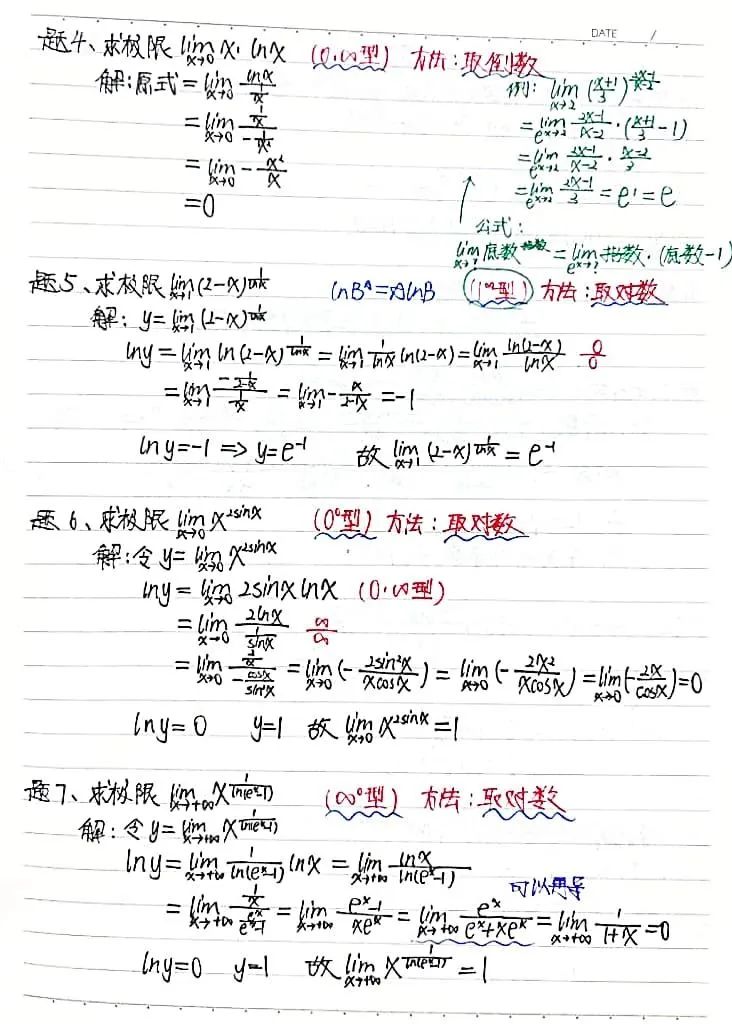 DATE /
题4、求极限 lim_{x→0} x·lnx (0·∞型) 方法:取倒数
解:原式 = lim_{x→0} lnx/(1/x)
= lim_{x→0} (1/x)/(-1/x²)
= lim_{x→0} -x²/x
= 0
例: lim_{x→2} ((x+1)/3)^{(2x-1)/(x-2)}
= e^{lim_{x→2} (2x-1)/(x-2)·((x+1)/3-1)}
= e^{lim_{x→2} (2x-1)/(x-2)·(x-2)/3}
= e^{lim_{x→2} (2x-1)/3} = e¹ = e
公式:
lim_{x→?} 底数^{指数} = e^{lim_{x→?} 指数·(底数-1)}
题5、求极限 lim_{x→1} (2-x)^{1/lnx} lnB^A=AlnB (1^∞型) 方法:取对数
解: y = lim_{x→1} (2-x)^{1/lnx}
lny = lim_{x→1} ln(2-x)^{1/lnx} = lim_{x→1} 1/lnx ln(2-x) = lim_{x→1} ln(2-x)/lnx 0/0
= lim_{x→1} (-1/(2-x))/(1/x) = lim_{x→1} -x/(2-x) = -1
lny=-1 ⇒ y=e^{-1} 故 lim_{x→1} (2-x)^{1/lnx} = e^{-1}
题6、求极限 lim_{x→0} x^{2sinx} (0⁰型) 方法:取对数
解:令 y = lim_{x→0} x^{2sinx}
lny = lim_{x→0} 2sinx lnx (0·∞型)
= lim_{x→0} 2lnx/(1/sinx) ∞/∞
= lim_{x→0} (2/x)/(-cosx/sin²x) = lim_{x→0} (-2sin²x/(xcosx)) = lim_{x→0} (-2x²/(xcosx)) = lim_{x→0} (-2x/cosx) = 0
lny=0 y=1 故 lim_{x→0} x^{2sinx} = 1
题7、求极限 lim_{x→+∞} x^{1/ln(e^x-1)} (∞⁰型) 方法:取对数
解:令 y = lim_{x→+∞} x^{1/ln(e^x-1)}
lny = lim_{x→+∞} 1/ln(e^x-1) lnx = lim_{x→+∞} lnx/ln(e^x-1)
可以再导
= lim_{x→+∞} (1/x)/(e^x/(e^x-1)) = lim_{x→+∞} (e^x-1)/(xe^x) = lim_{x→+∞} e^x/(e^x+xe^x) = lim_{x→+∞} 1/(1+x) = 0
lny=0 y=1 故 lim_{x→+∞} x^{1/ln(e^x-1)} = 1